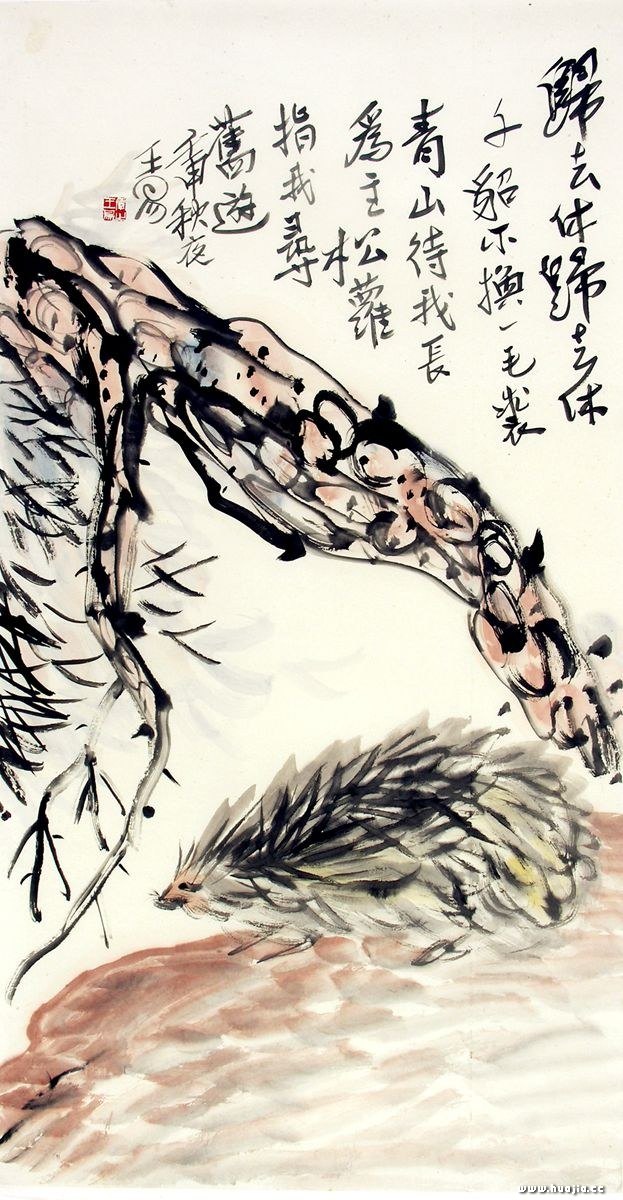 歸去休歸去休
千貂不換一毛裘
青山待我長
為主松蘿
指我尋
舊遊
秋夜
王
www.huajia.cc